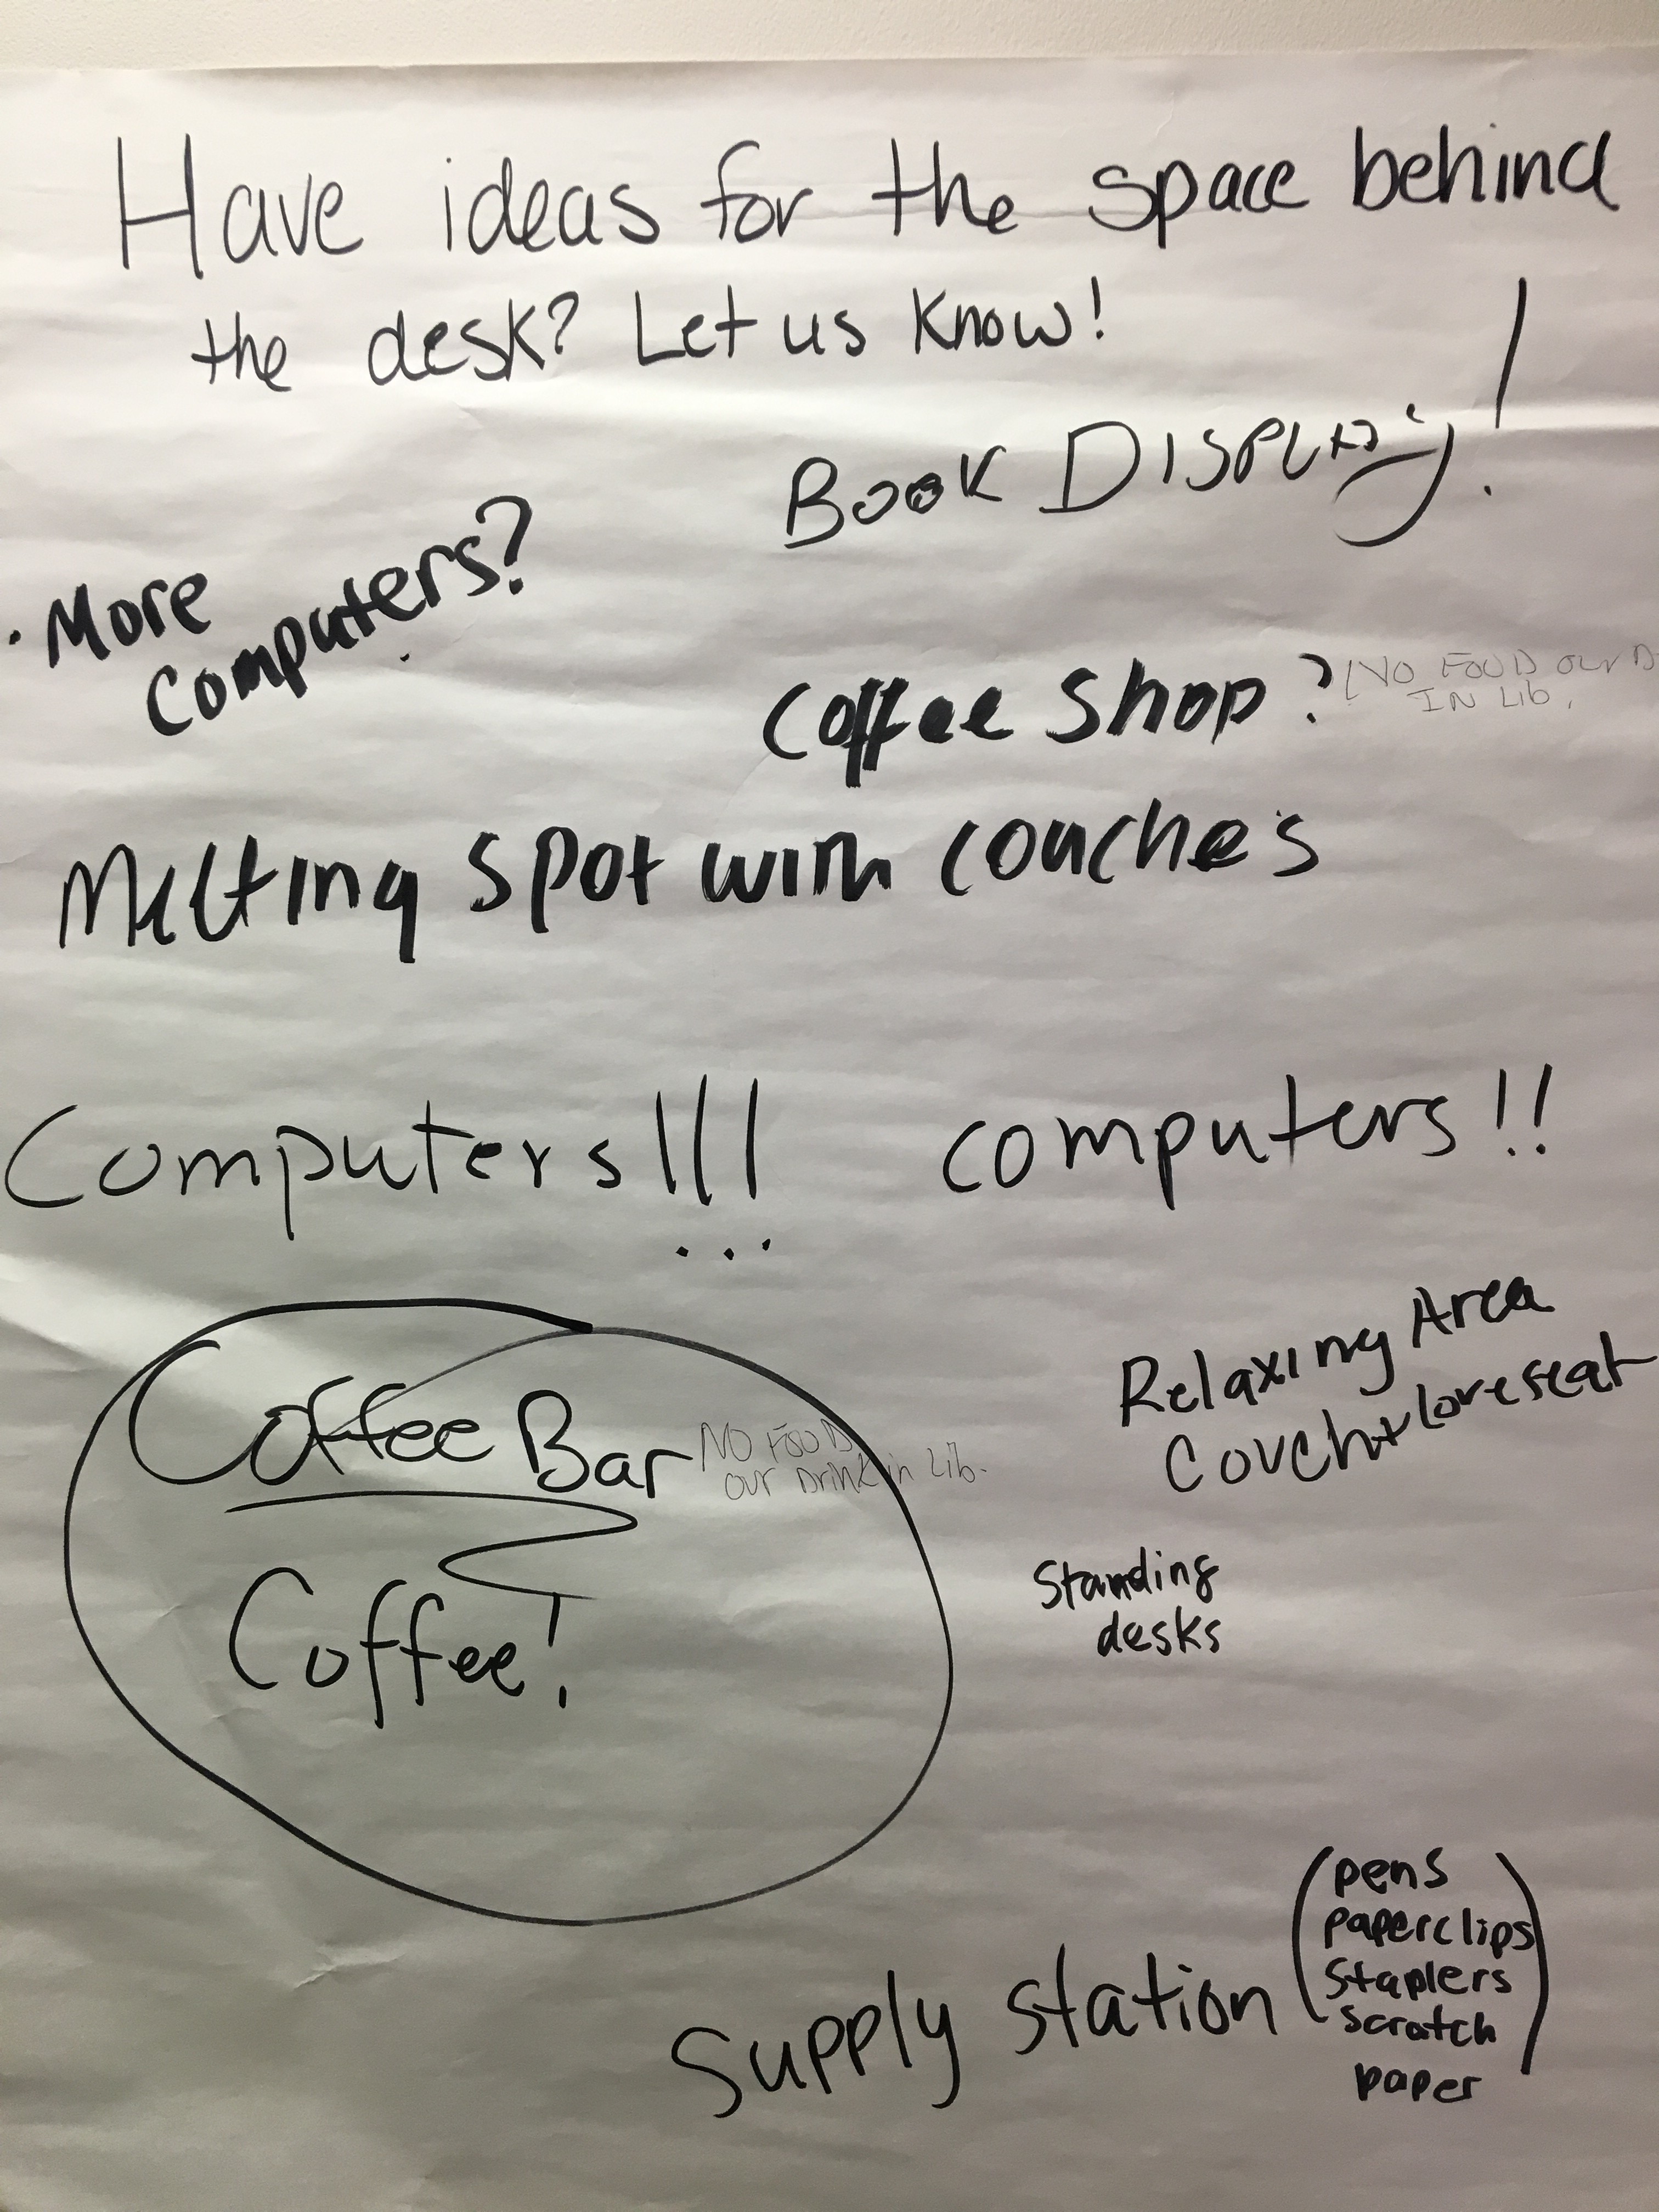 Have ideas for the space behind
the desk? Let us know!
Book Display!
· More
Computers?
Coffee shop?
(No Food our D
In Lib.
Melting spot with couches
Computers!!!
computers!!
Coffee Bar
No Food
our Drink in Lib.
Coffee!
Relaxing Area
Couch + Loveseat
Standing
desks
Supply station
(pens
paperclips
staplers
scratch
paper)